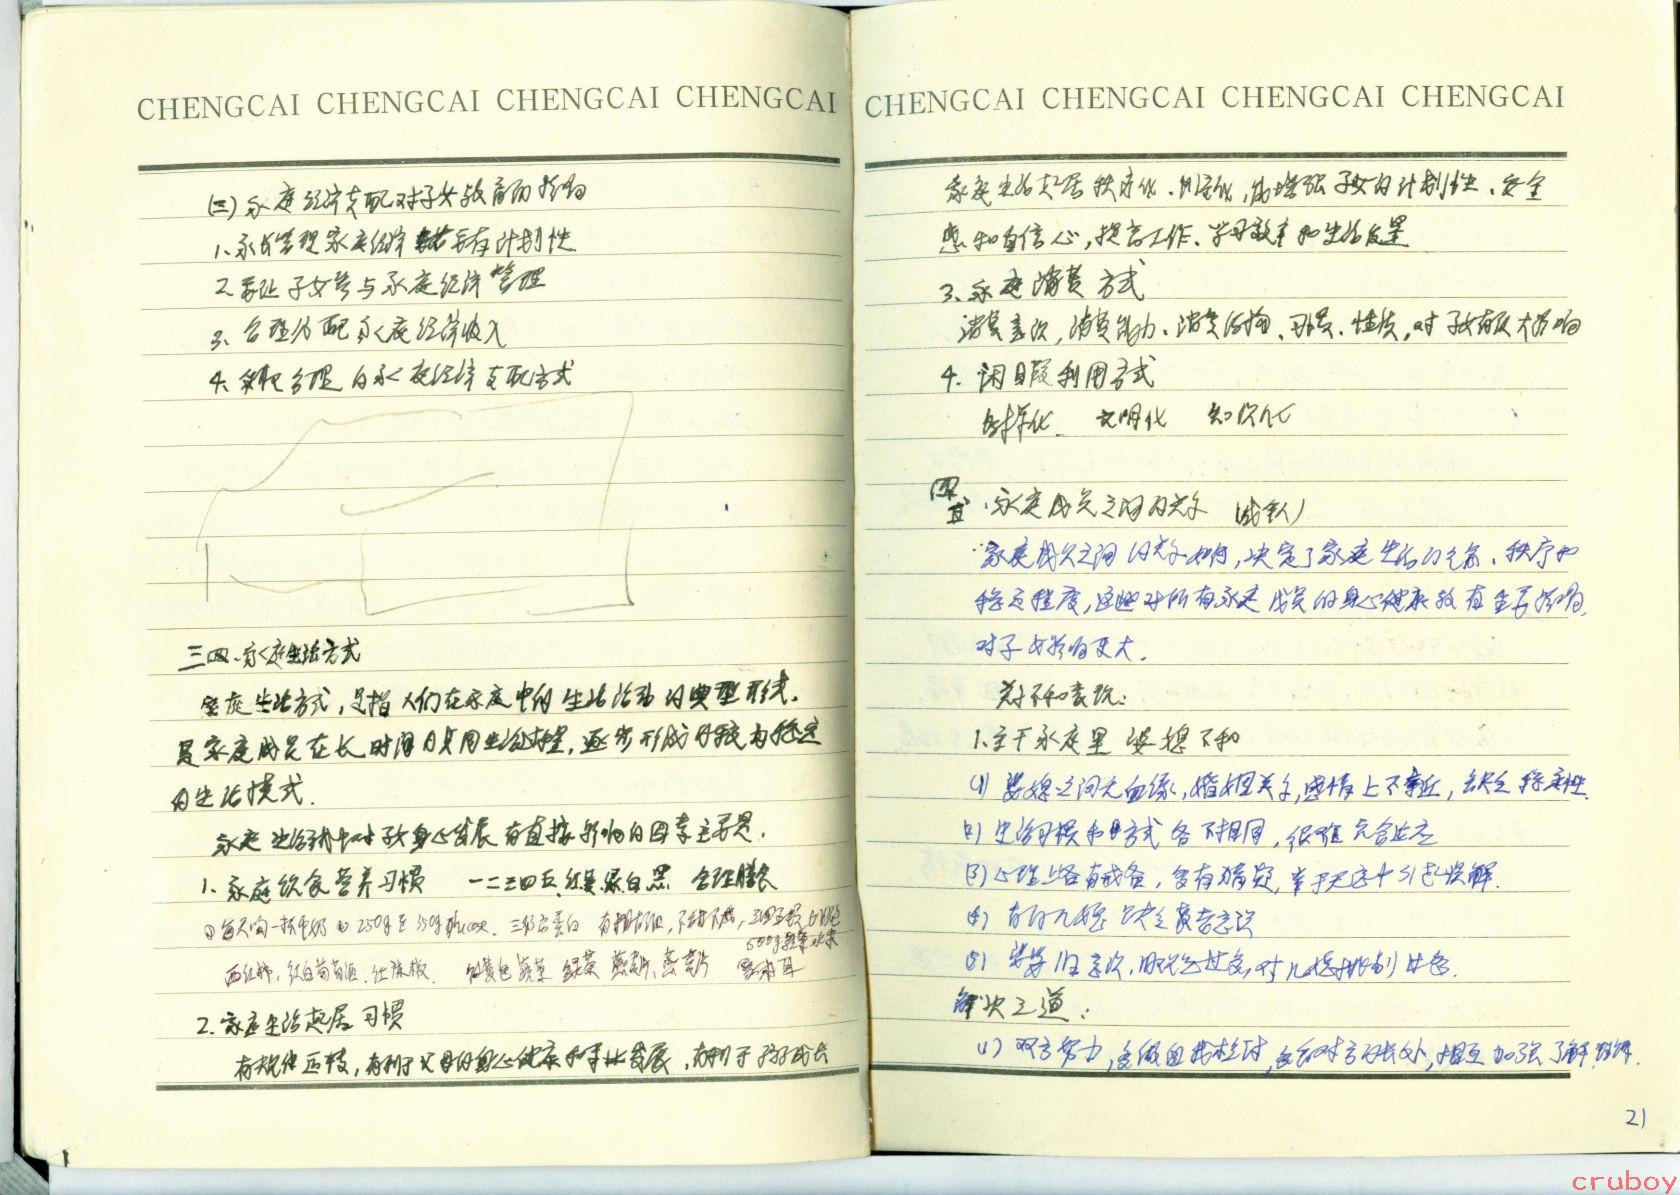 CHENGCAI CHENGCAI CHENGCAI CHENGCAI
(三)家庭经济支配对子女教育的影响
1、家长管理家庭经济要有计划性
2、要让子女参与家庭经济管理
3、合理分配家庭经济收入
4、采取合理的家庭经济支配方式
三四、家庭生活方式
家庭生活方式,是指人们在家庭中的生活活动的典型形式.
是家庭成员在长时间的共同生活中,逐步形成的较为稳定
的生活模式.
家庭生活方式中对子女身心发展有直接影响的因素主要是.
1、家庭饮食营养习惯 一二三四五,红黄绿白黑 合理膳食
① 每天间一 250g 至 350g 三份高蛋白 有粗有细,不甜不咸,三四五顿,七八分饱
500g蔬菜水果
西红柿,红白葡萄酒, 红黄色蔬菜 绿茶 燕麦片 黑木耳
2、家庭生活起居习惯
有规律 有利于父母的身心健康和事业发展,有利于孩子成长
CHENGCAI CHENGCAI CHENGCAI CHENGCAI
家庭生活起居秩序化、制度化,能增强子女的计划性、安全
感和自信心,提高工作、学习效率和生活质量
3、家庭消费方式
消费意识,消费能力、消费结构、习惯、性质,对子女有很大影响
4、闲暇利用方式
多样化 文明化 知识化
四五、家庭成员之间的关系
家庭成员之间的关系如何,决定了家庭生活的气氛、秩序和
稳定程度,这些对所有家庭成员的身心健康都有重要影响,
对子女影响更大.
关系不和表现:
1、主干家庭里 婆媳不和
(1) 婆媳之间无血缘,婚姻关系,感情上不亲近,缺乏稳定性.
(2) 生活习惯和方式各不相同,很难完全适应
(3) 心理上各有戒备,多有猜疑, 引起误解.
(4) 有的儿媳缺乏赡老意识
(5) 婆婆旧意识, 对儿媳
解决之道:
(1) 双方努力,多做自我检讨,多看对方的长处,相互加强了解.
21
cruboy